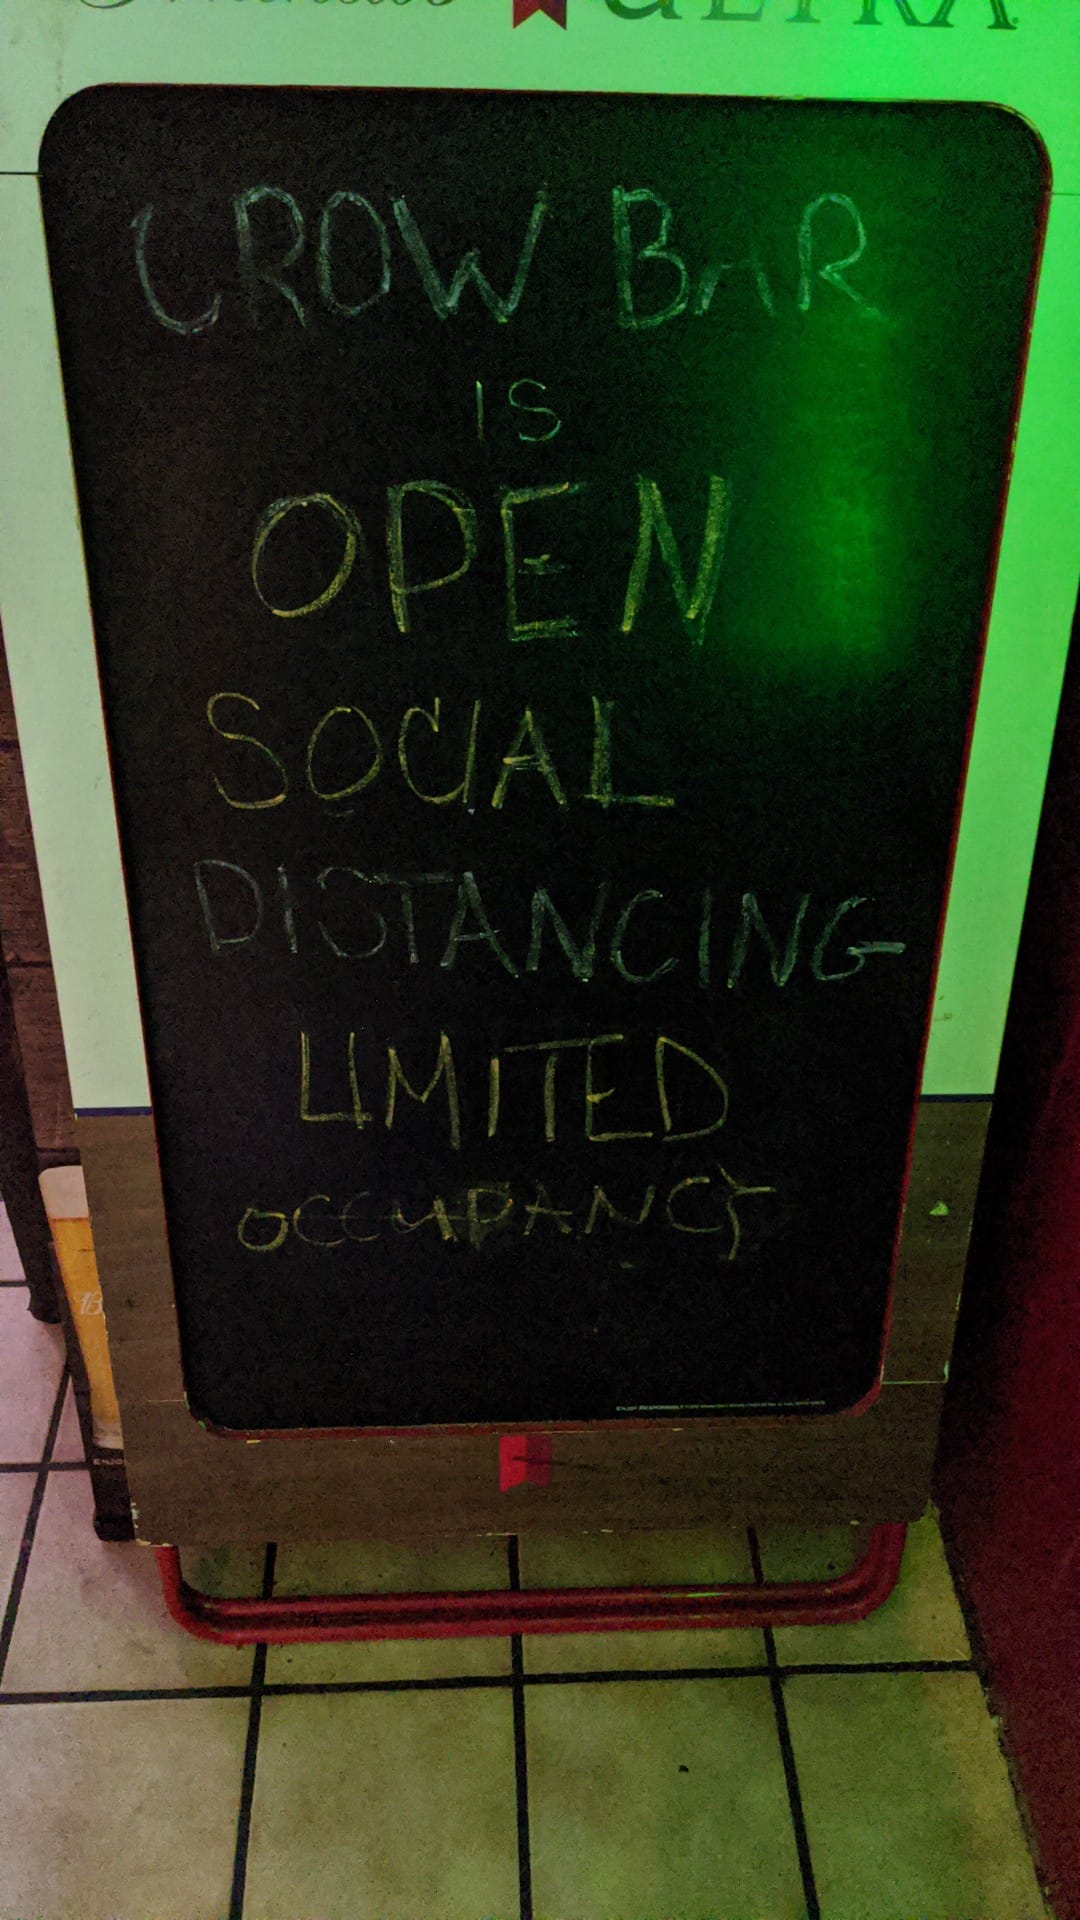 ULTRA
CROW BAR
IS
OPEN
SOCIAL
DISTANCING
LIMITED
OCCUPANCY